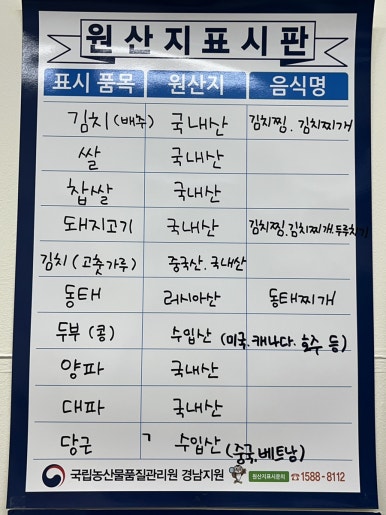 원산지표시판
표시 품목 원산지 음식명
김치(배추) 국내산 김치찜. 김치찌개
쌀 국내산
찹쌀 국내산
돼지고기 국내산 김치찜.김치찌개.두루치기
김치(고춧가루) 중국산.국내산
동태 러시아산 동태찌개
두부(콩) 수입산 (미국.캐나다.호주 등)
양파 국내산
대파 국내산
당근 수입산 (중국.베트남)
국립농산물품질관리원 경남지원 원산지표시문의 ☎1588-8112